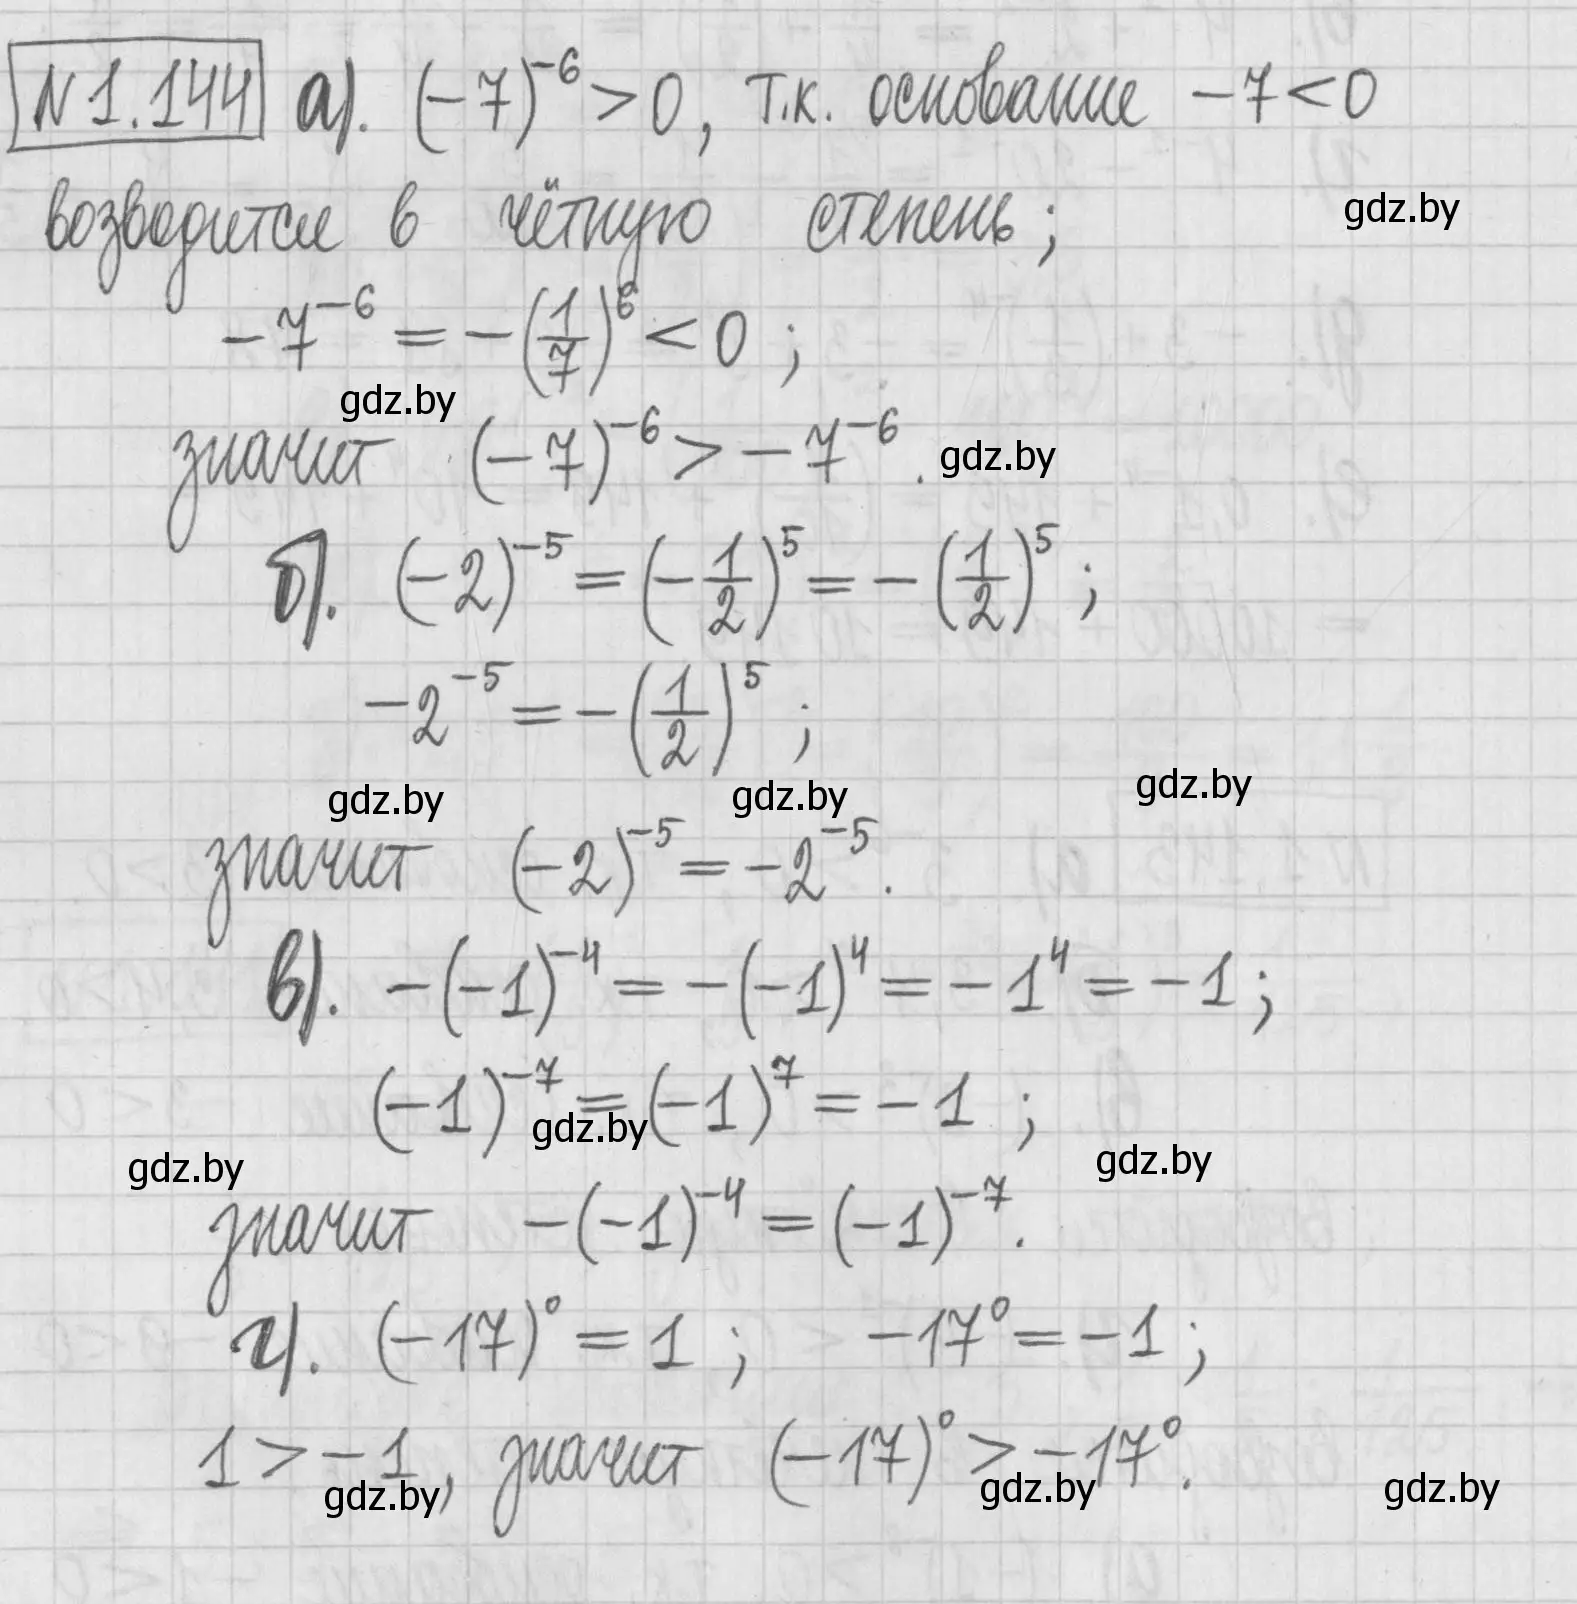 N 1.144 а). (-7)⁻⁶ > 0, т.к. основание -7 < 0
возводится в чётную степень;
gdz.by
-7⁻⁶ = -(1/7)⁶ < 0 ;
gdz.by
значит (-7)⁻⁶ > -7⁻⁶.
gdz.by
б). (-2)⁻⁵ = (-1/2)⁵ = -(1/2)⁵ ;
-2⁻⁵ = -(1/2)⁵ ;
gdz.by gdz.by gdz.by
значит (-2)⁻⁵ = -2⁻⁵.
в). -(-1)⁻⁴ = -(-1)⁴ = -1⁴ = -1 ;
(-1)⁻⁷ = (-1)⁷ = -1 ;
gdz.by gdz.by gdz.by
значит -(-1)⁻⁴ = (-1)⁻⁷.
г). (-17)⁰ = 1 ; -17⁰ = -1 ;
1 > -1, значит (-17)⁰ > -17⁰.
gdz.by gdz.by gdz.by